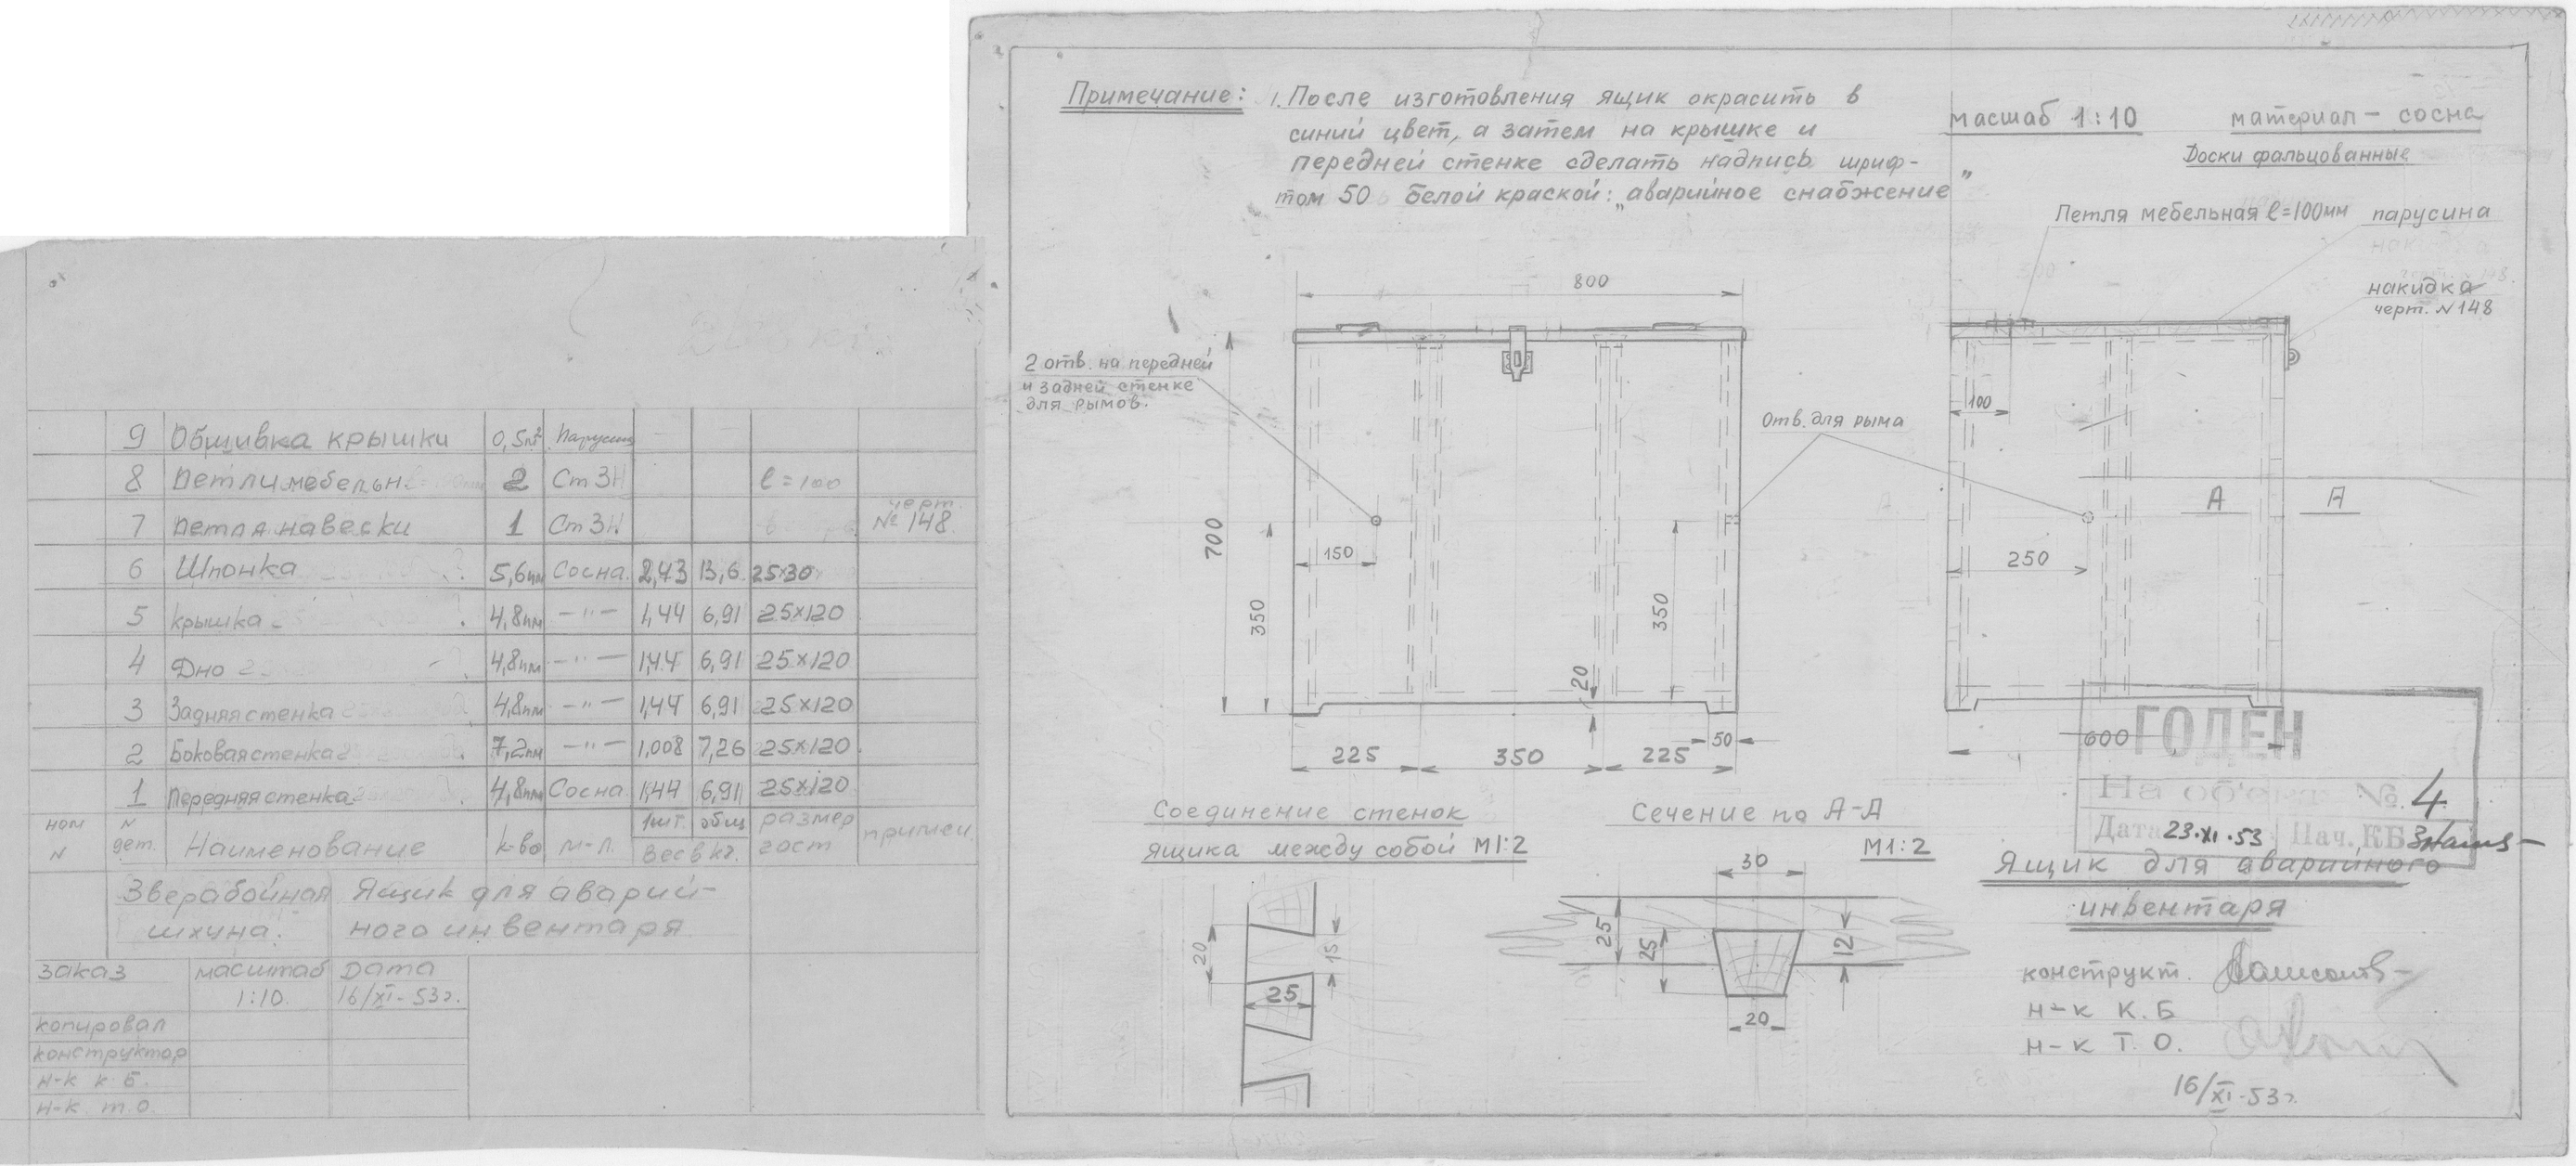 9 Обшивка крышки 0,5м² Парусин
8 Петли мебельн. 2 Ст 3Н ℓ=100
7 Петля навески 1 Ст 3Н черт. № 148.
6 Шпонка 5,6пм Сосна. 2,43 13,6 25×30
5 крышка 4,8пм —"— 1,44 6,91 25×120
4 Дно 4,8пм —"— 1,44 6,91 25×120
3 Задняя стенка 4,8пм —"— 1,44 6,91 25×120
2 Боковая стенка 7,2пм —"— 1,008 7,26 25×120
1 Передняя стенка 4,8пм Сосна 1,44 6,91 25×120
ном N
N дет.
Наименование
к-во
м-л.
1шт. общ
вес в кг.
размер гост
примеч.
Зверобойная шхуна.
Ящик для аварий-
ного инвентаря
заказ
масштаб 1:10.
Дата 16/XI-53г.
копировал
конструктор
н-к к.б.
н-к т.о.
Примечание: 1. После изготовления ящик окрасить в
синий цвет, а затем на крышке и
передней стенке сделать надпись шриф-
том 50 белой краской: „аварийное снабжение"
масшаб 1:10
материал — сосна
Доски фальцованные
Петля мебельная ℓ=100мм
парусина
накидка
черт. N148
800
2 отв. на передней
и задней стенке
для рымов.
Отв. для рыма
100
700
150
350
350
20
250
А А
50
225 350 225
600
ГОДЕН
На объект №. 4
Дата 23.XI.53 Нач. КБ
Соединение стенок
ящика между собой М1:2
20
15
25
Сечение по А-А
М1:2
30
25
25
12
20
Ящик для аварийного
инвентаря
конструкт.
н-к К.Б
н-к Т.О.
16/XI-53г.